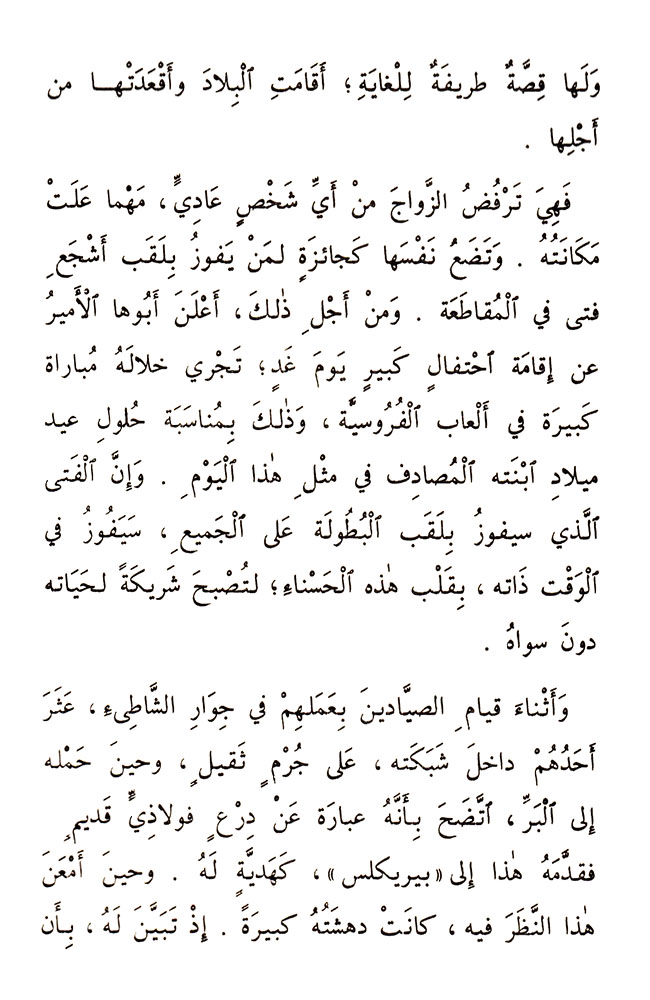 وَلَها قِصَّةٌ طريفَةٌ لِلْغايَةِ؛ أَقَامَتِ ٱلْبِلادَ وأَقْعَدَتْهـا من
أَجْلِها .
فَهِيَ تَرْفُضُ الزَّواجَ منْ أَيِّ شَخْصٍ عَادِيٍّ، مَهْما عَلَتْ
مَكَانَتُهُ . وَتَضَعُ نَفْسَها كَجائزَةٍ لمَنْ يَفوزُ بِلَقَب أَشْجَعِ
فتى في ٱلْمُقاطَعَة . وَمنْ أَجْلِ ذٰلكَ، أَعْلَنَ أَبُوها ٱلْأَميرُ
عن إِقامَة ٱحْتفالٍ كَبيرٍ يَومَ غَدٍ؛ تَجْري خلالَهُ مُباراة
كَبيرَة في أَلْعاب ٱلْفُروسيَّة، وَذٰلكَ بِمُناسَبَة حُلولِ عيد
ميلادِ ٱبْنَته ٱلْمُصادِف في مثْلِ هٰذا ٱلْيَوْمِ . وَإِنَّ ٱلْفَتى
ٱلَّذي سيفوزُ بِلَقَب ٱلْبُطولَة عَلى ٱلْجَميعِ، سَيَفُوزُ في
ٱلْوَقْت ذَاته، بِقَلْب هٰذه ٱلْحَسْناءِ؛ لتُصْبحَ شَريكَةً لحَيَاته
دونَ سواهُ .
وَأَثْناءَ قيامِ الصيَّادينَ بِعَمَلهِمْ في جِوَارِ الشَّاطِىءِ، عَثَرَ
أَحَدُهُمْ داخلَ شَبَكَته، عَلى جُرْمٍ ثَقيلٍ، وحينَ حَمْله
إِلى ٱلْبَرِّ، ٱتَّضَحَ بِأَنَّهُ عبارَة عَنْ دِرْعٍ فولاذِيٍّ قَديمٍ
فقدَّمَهُ هٰذا إِلى «بيريكلس»، كَهَديَّةٍ لَهُ . وحينَ أَمْعَنَ
هٰذا النَّظَرَ فيه، كانَتْ دهشَتُهُ كبيرَةً . إِذْ تَبَيَّنَ لَهُ، بِأَن